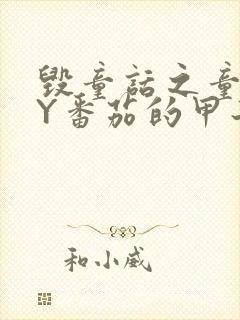 毁童话之童
Y番茄的甲
和小威